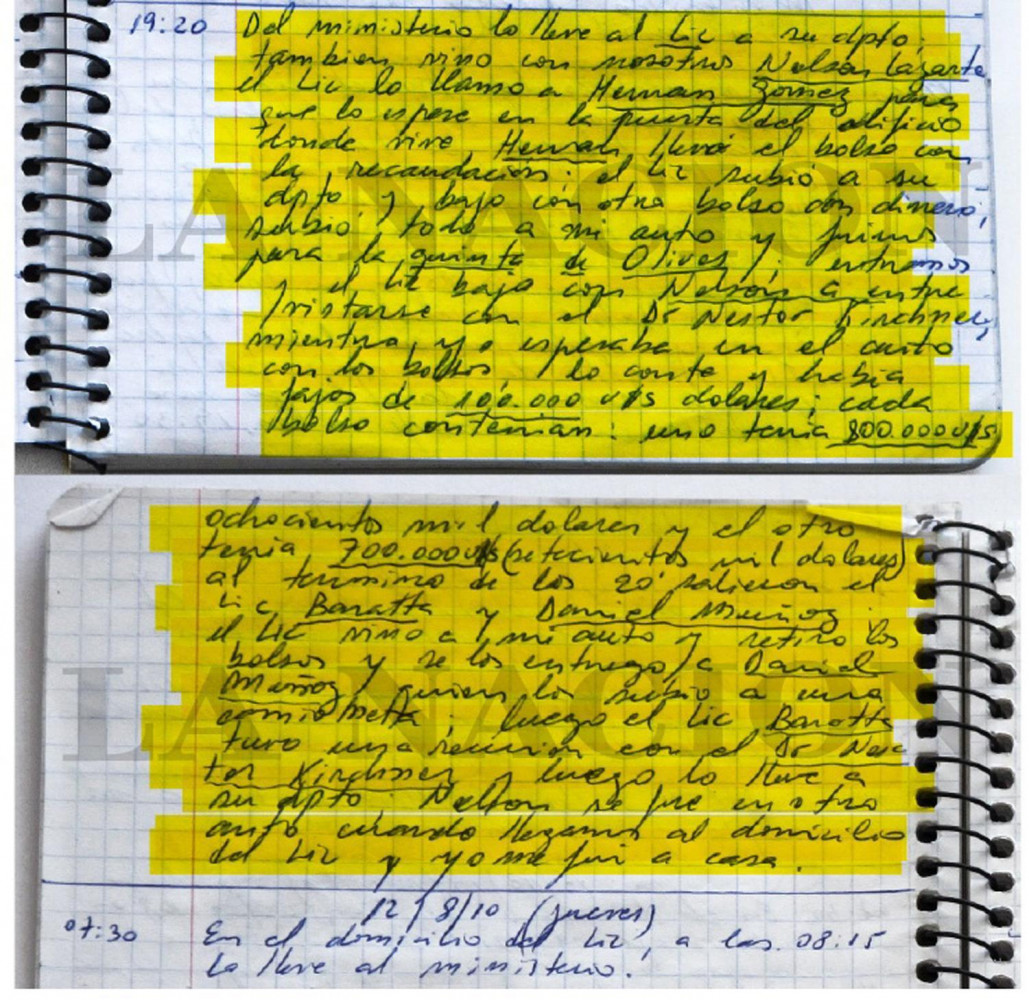 19:20 Del ministerio lo lleve al Lic a su dpto,
tambien vino con nosotros Nelson Lazarte
el Lic lo llamo a Hernan Gomez para
que lo espere en la puerta del edificio
donde vive, Hernan llevó el bolso con
la recaudación; el Lic subio a su
dpto y bajo con otro bolso con dinero,
subio todo a mi auto y fuimos
para la quinta de Olivos, entramos
y el Lic bajo con Nelson a entre
vistarse con el Dr Nestor Kirchner,
mientra yo esperaba en el auto
con los bolsos, lo conte y habia
fajos de 100.000 u$s dolares; cada
bolso contenian: uno tenia 800.000 u$s
ochocientos mil dolares y el otro
tenia 700.000 u$s (setecientos mil dolares)
al termino de los 20' salieron el
Lic Baratta y Daniel Muñoz
el Lic vino a mi auto y retiro los
bolsos y se los entrego a Daniel
Muñoz, quien los subio a una
camionetta, luego el Lic Baratta
tuvo una reunión con el Dr Nes
tor Kirchner y luego lo lleve a
su dpto, Nelson se fue en otro
auto cuando llegamos al domicilio
del Lic y yo me fui a casa.
12/8/10 (jueves)
07:30 En el domicilio del Lic, a las 08:15
lo lleve al ministerio.
LA NACION
LA NACION